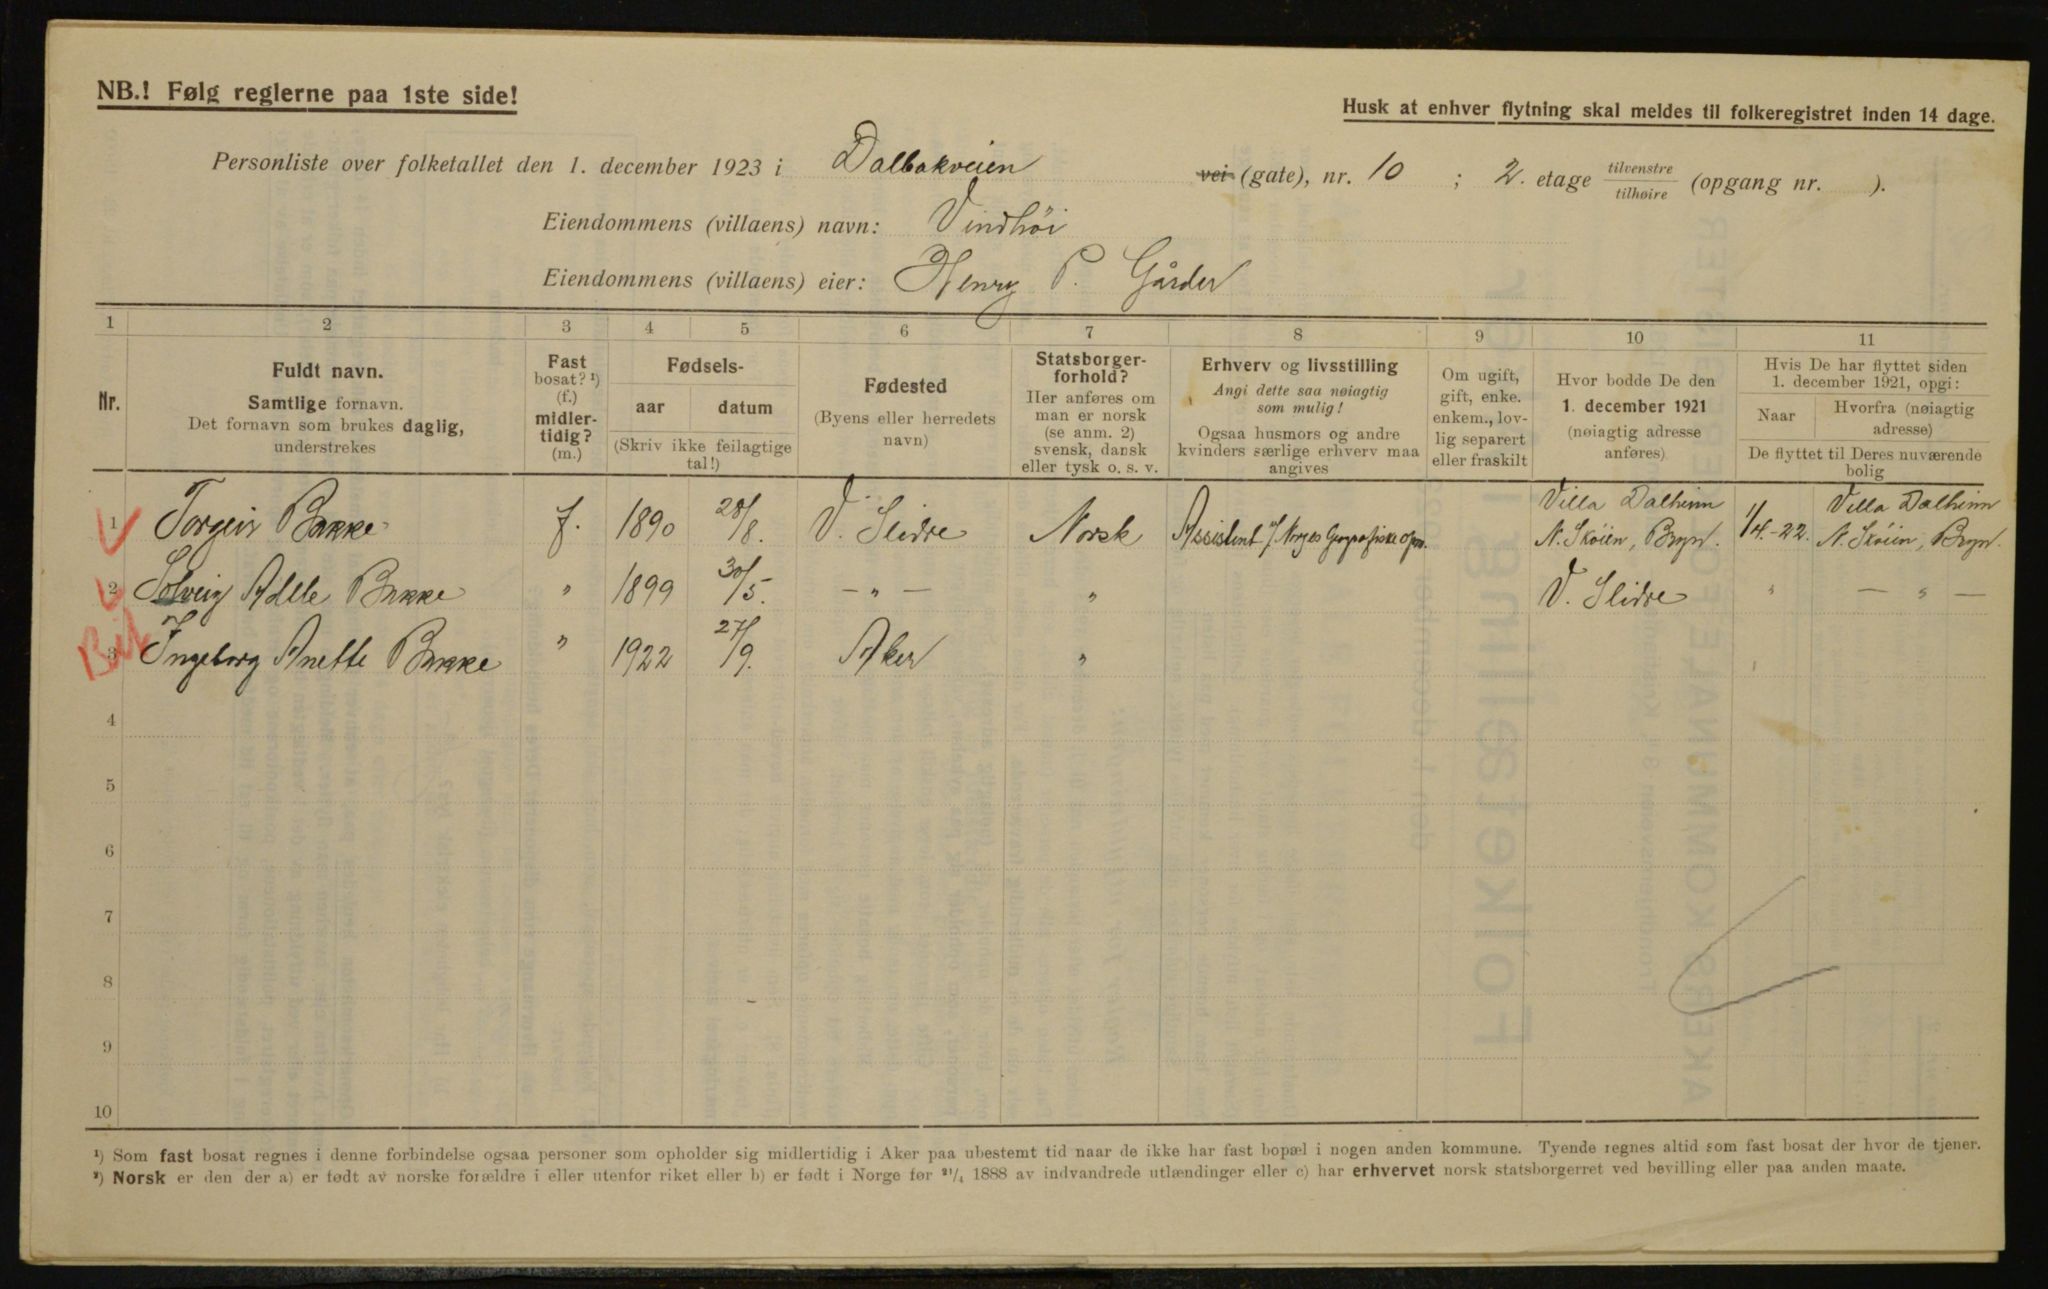 NB.! Følg reglerne paa 1ste side!
Husk at enhver flytning skal meldes til folkeregistret inden 14 dage.
Personliste over folketallet den 1. december 1923 i Dalbakveien vei (gate), nr. 10 ; 2. etage tilvenstre tilhøire (opgang nr. ).
Eiendommens (villaens) navn: Vindhöi
Eiendommens (villaens) eier: Henry P. Gårder
1 2 3 4 5 6 7 8 9 10 11
Nr.
Fuldt navn.
Samtlige fornavn.
Det fornavn som brukes daglig,
understrekes
Fast
bosat? ¹)
(f.)
midler-
tidig?
(m.)
Fødsels-
aar datum
(Skriv ikke feilagtige
tal!)
Fødested
(Byens eller herredets
navn)
Statsborger-
forhold?
Her anføres om
man er norsk
(se anm. 2)
svensk, dansk
eller tysk o. s. v.
Erhverv og livsstilling
Angi dette saa nøiagtig
som mulig!
Ogsaa husmors og andre
kvinders særlige erhverv maa
angives
Om ugift,
gift, enke.
enkem., lov-
lig separert
eller fraskilt
Hvor bodde De den
1. december 1921
(nøiagtig adresse
anføres)
Hvis De har flyttet siden
1. december 1921, opgi:
Naar Hvorfra (nøiagtig
adresse)
De flyttet til Deres nuværende
bolig
1 Torgeir Bakke f. 1890 28/8. V. Slidre Norsk Assistent v/ Norges Geografiske opm. Villa Dalheim N. Skøien, Bryn. 1/4.-22. Villa Dalheim N. Skøien, Bryn.
2 Solveig Adele Bakke " 1899 30/5. — " — " V. Slidre " — " —
3 Ingeborg Anette Bakke " 1922 27/9. Aker "
4
5
6
7
8
9
10
¹) Som fast bosat regnes i denne forbindelse ogsaa personer som opholder sig midlertidig i Aker paa ubestemt tid naar de ikke har fast bopæl i nogen anden kommune. Tyende regnes altid som fast bosat der hvor de tjener.
²) Norsk er den der a) er født av norske forældre i eller utenfor riket eller b) er født i Norge før ²¹/₄ 1888 av indvandrede utlændinger eller c) har erhvervet norsk statsborgerret ved bevilling eller paa anden maate.